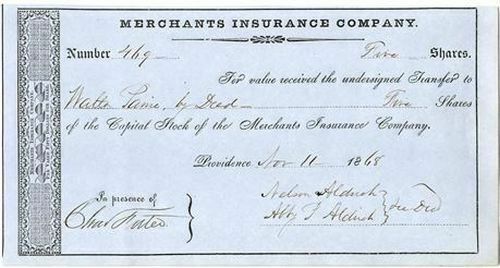 MERCHANTS INSURANCE COMPANY.
Number 469 Five Shares.
For value received the undersigned Transfer to
by Deed Five Shares
of the Capital Stock of the Merchants Insurance Company.
Providence Nov 11 1868
In presence of
Nelson Aldrich
Abby Aldrich